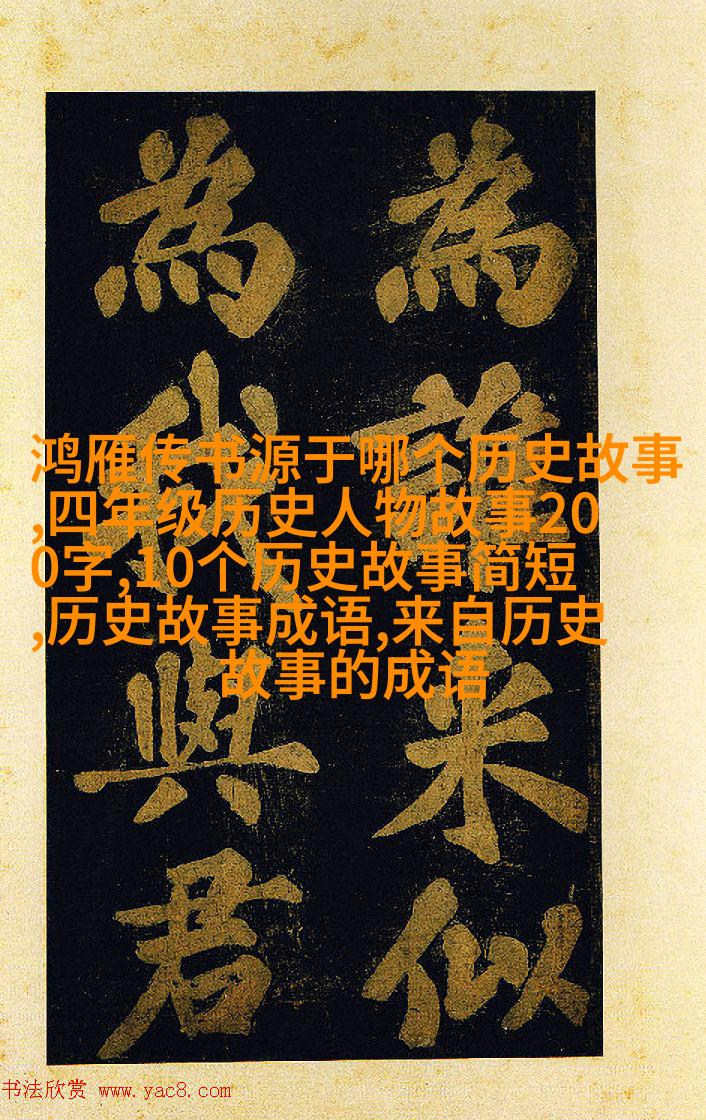 為誰来似
為我與君
鸿雁传书源于哪个历史故事
,四年级历史人物故事20
0字,10个历史故事简短
,历史故事成语,来自历史
故事的成语
书法欣赏 www.yac8.com